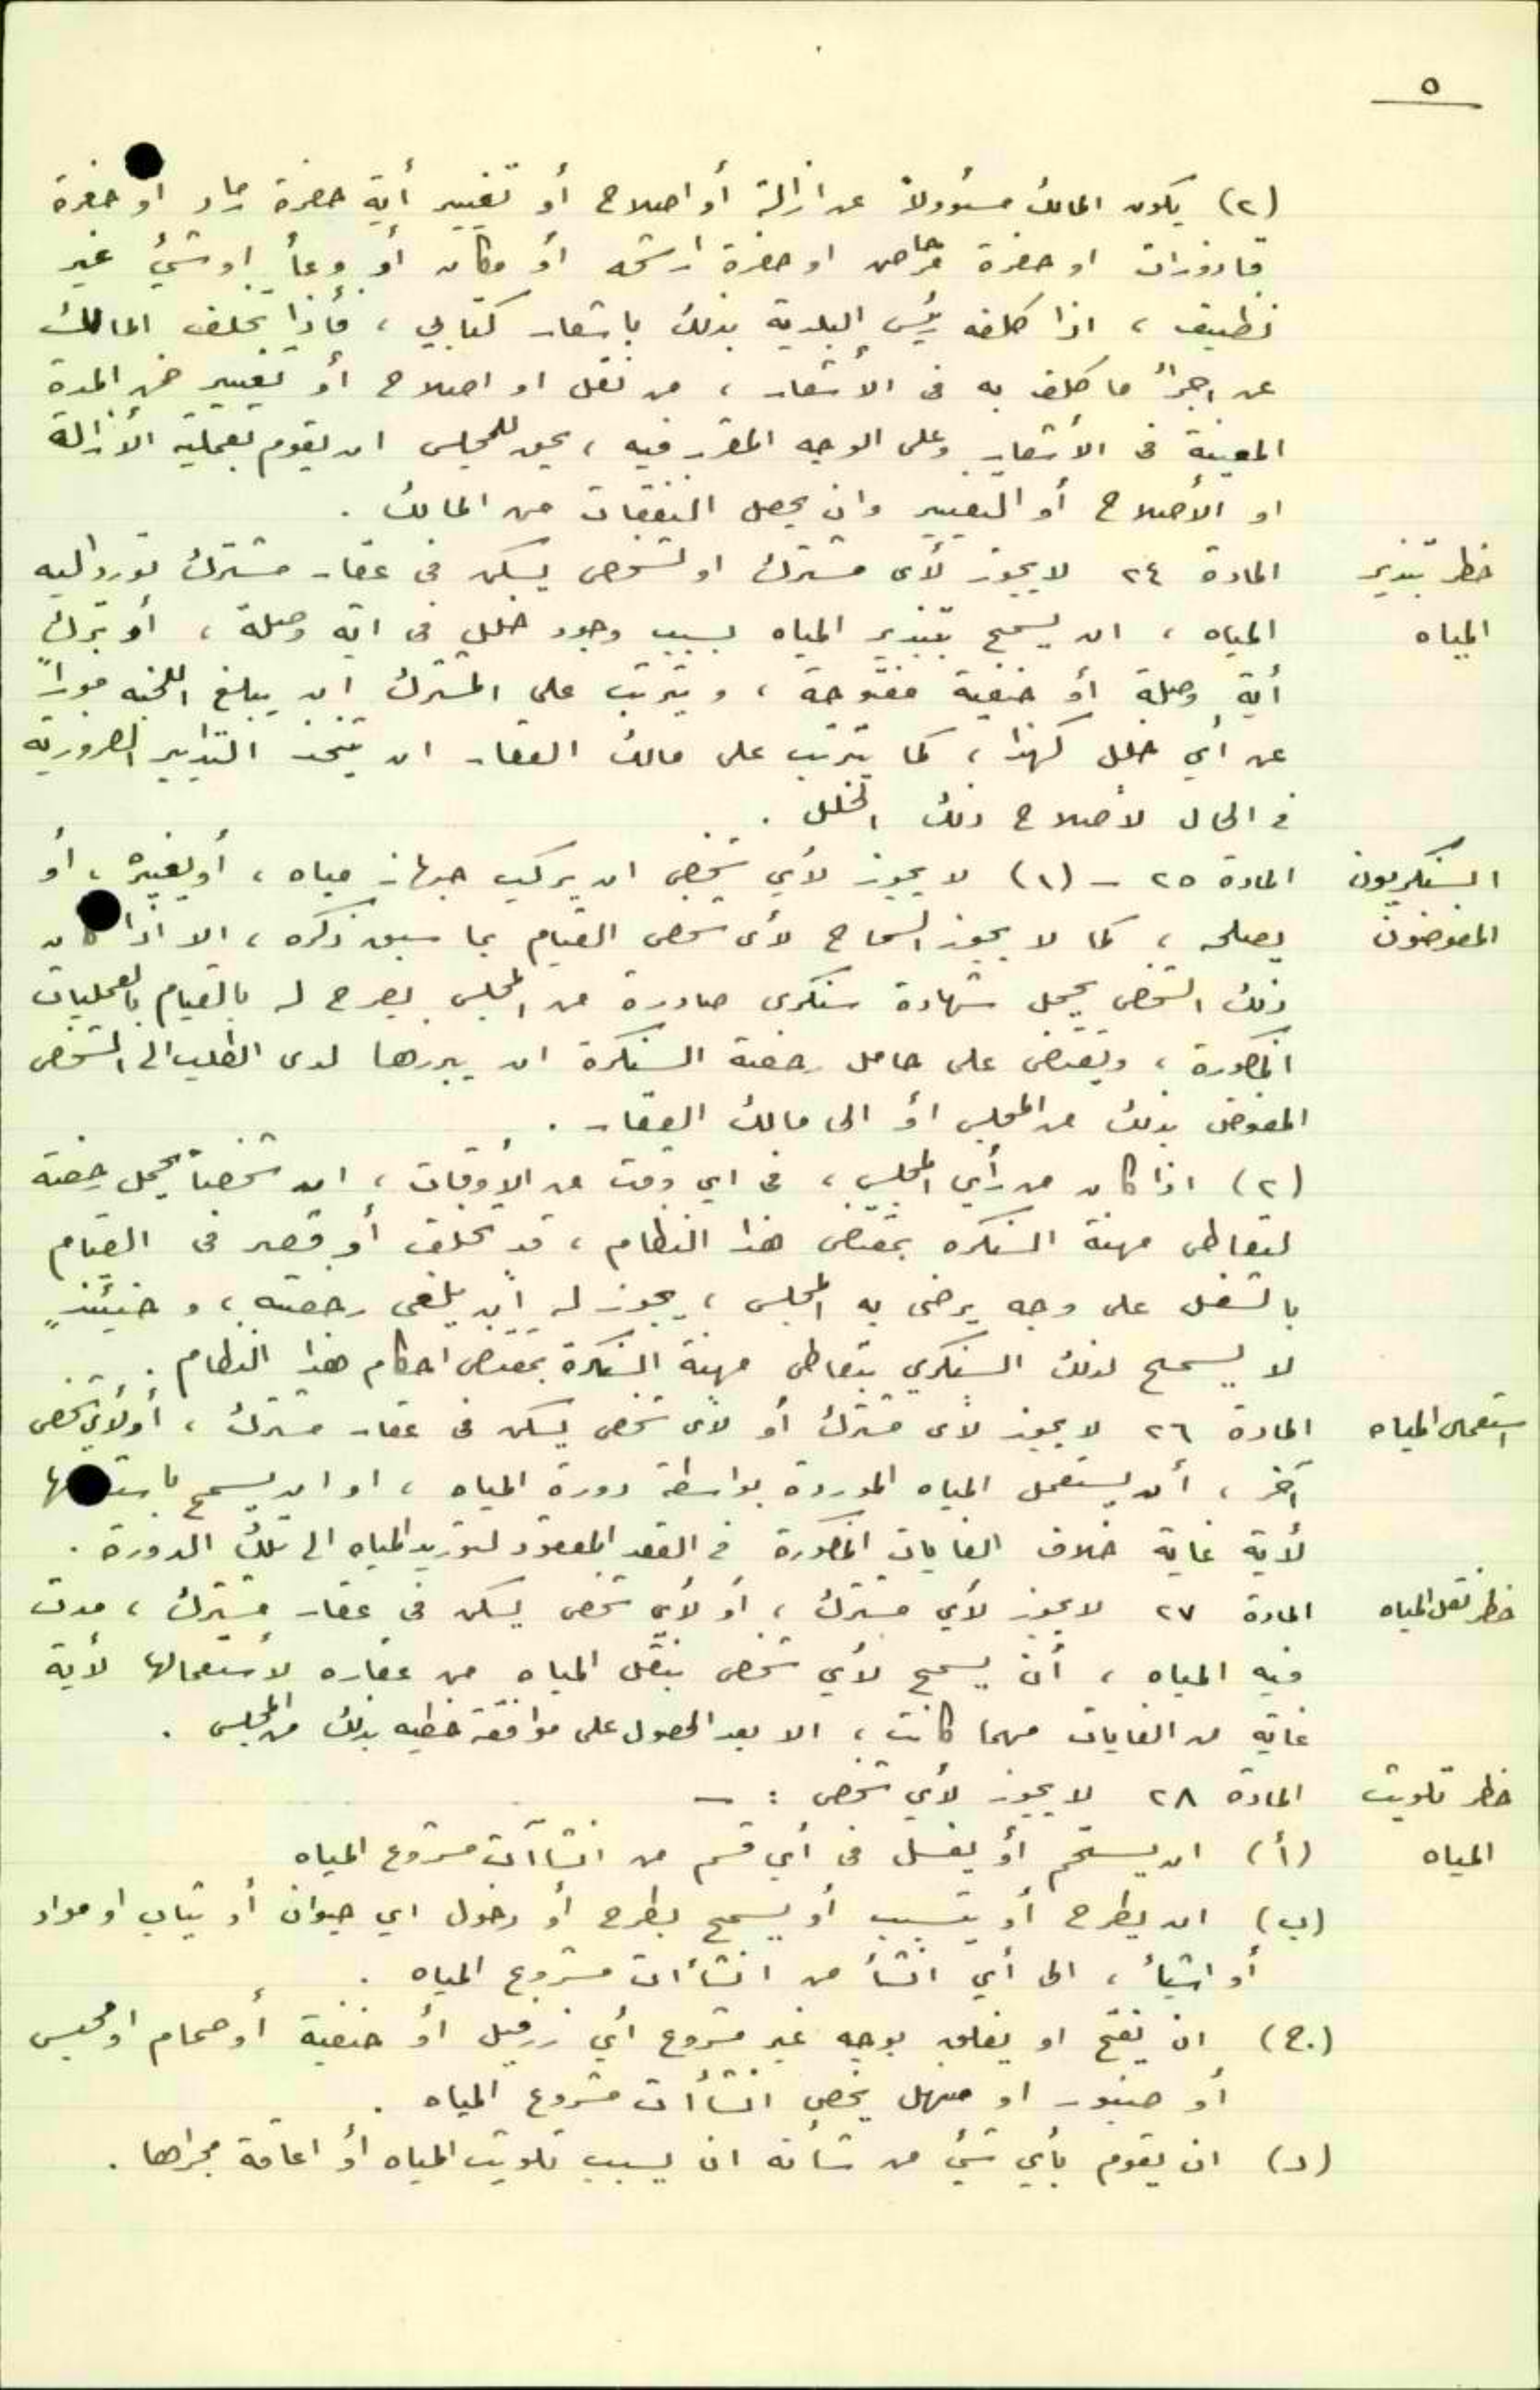 ٥
(٢) يكون المالك مسؤولاً عن ازالة أو اصلاح أو تغيير أية حفرة رماد او حفرة
قاذورات او حفرة مرحاض او حفرة ارشحه أو مكان أو وعأ او شيء غير
نظيف ، اذا كلفه رئيس البلدية بذلك باشعار كتابي ، فأذا تخلف المالك
عن اجرأ ما كلف به في الأشعار ، من نقل او اصلاح أو تغيير ضمن المدة
المعينة في الأشعار وعلى الوجه المقرر فيه ، يحق للمجلس ان يقوم بعملية الأزالة
او الأصلاح أو التغيير وان يحصل النفقات من المالك .
حظر تبذير المادة ٢٤ لا يجوز لأى مشترك او لشخص يسكن في عقار مشترك تورد اليه
المياه المياه ، ان يسمح بتبذير المياه بسبب وجود خلل في اية وصلة ، أو بترك
أية وصلة أو حنفية مفتوحة ، ويترتب على المشترك ان يبلغ اللجنه فوراً
عن أي خلل كهذا ، كما يترتب على مالك العقار ان يتخذ التدابير الضرورية
في الحال لأصلاح ذلك الخلل .
السنكريون المادة ٢٥ - (١) لا يجوز لأي شخص ان يركب جهاز مياه ، أو يغيره ، أو
المفوضون يصلحه ، كما لا يجوز السماح لأى شخص القيام بما سبق ذكره ، الا اذا كان
ذلك الشخص يحمل شهادة سنكرى صادرة من المجلس يصرح له بالقيام بالعمليات
المذكورة ، ويقتضى على حامل رخصة السنكرة ان يبرزها لدى الطلب الى الشخص
المفوض بذلك من المجلس أو الى مالك العقار .
(٢) اذا كان من رأي المجلس ، في اي وقت من الأوقات ، ان شخصاً يحمل رخصة
لتعاطى مهنة السنكره بمقتضى هذا النظام ، قد تخلف أو قصر في القيام
بالشغل على وجه يرضى به المجلس ، يجوز له أن يلغى رخصته ، و حينئذٍ
لا يسمح لذلك السنكري بتعاطى مهنة السنكرة بمقتضى احكام هذا النظام .
استعمال المياه المادة ٢٦ لا يجوز لأى مشترك أو لأى شخص يسكن في عقار مشترك ، أو لأي شخص
آخر ، أن يستعمل المياه الموردة بواسطة دورة المياه ، او ان يسمح باستعمالها
لأية غاية خلاف الغايات المذكورة في العقد المعقود لتوريد المياه الى تلك الدورة .
حظر نقل المياه المادة ٢٧ لا يجوز لأي مشترك ، أو لأي شخص يسكن في عقار مشترك ، مدت
فيه المياه ، أن يسمح لأي شخص بنقل المياه من عقاره لأستعمالها لأية
غاية من الغايات مهما كانت ، الا بعد الحصول على موافقة خطيه بذلك من المجلس .
حظر تلويث المادة ٢٨ لا يجوز لأي شخص : -
المياه (أ) ان يستحم أو يغسل في أي قسم من انشاآت مشروع المياه
(ب) ان يطرح أو يتسبب أو يسمح بطرح أو دخول اي حيوان أو ثياب او مواد
أو اشيأ ، الى أي انشأ من انشاأات مشروع المياه .
(ج) ان يفتح او يغلق بوجه غير مشروع أي زرفيل أو حنفية أو صمام او محبس
أو صنبور او منهل يخص انشاأت مشروع المياه .
(د) ان يقوم بأي شيء من شأنه ان يسبب تلويث المياه أو اعاقة مجراها .